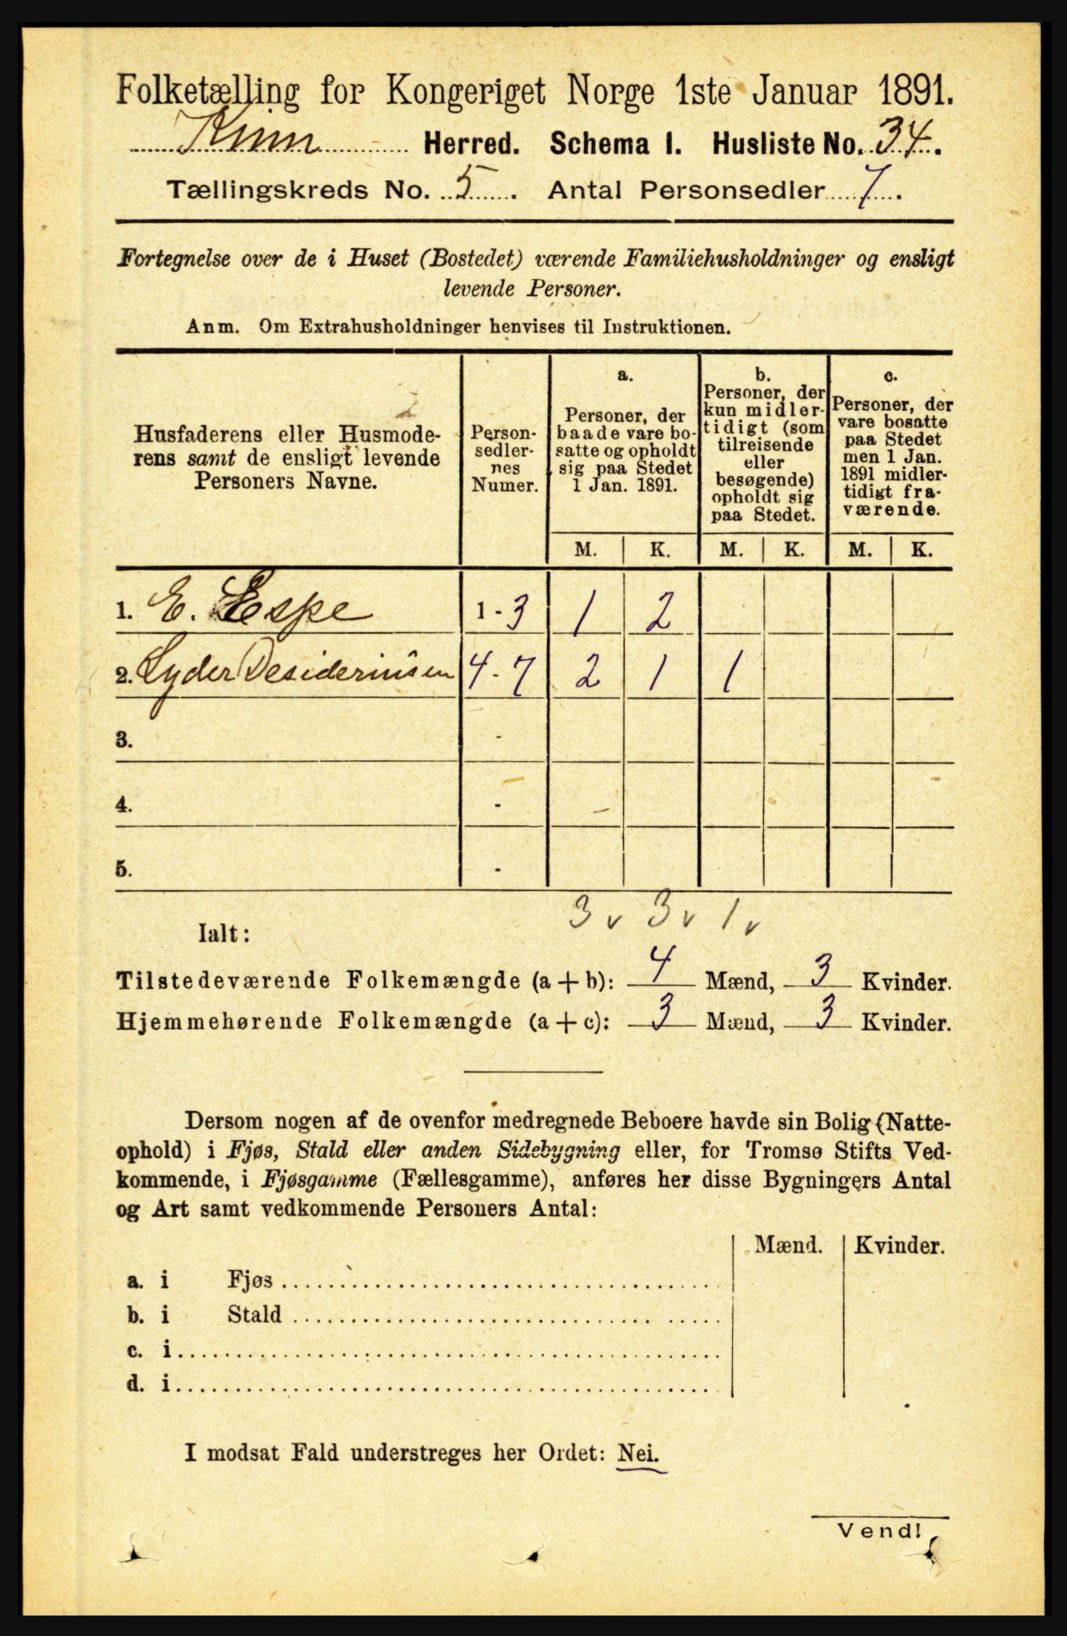 Folketælling for Kongeriget Norge 1ste Januar 1891.
Kinn Herred. Schema I. Husliste No. 34.
Tællingskreds No. 5. Antal Personsedler 7.
Fortegnelse over de i Huset (Bostedet) værende Familiehusholdninger og ensligt
levende Personer.
Anm. Om Extrahusholdninger henvises til Instruktionen.
Husfaderens eller Husmode-
rens samt de ensligt levende
Personers Navne.
Person-
sedler-
nes
Numer.
a.
Personer, der
baade vare bo-
satte og opholdt
sig paa Stedet
1 Jan. 1891.
b.
Personer, der
kun midler-
tidigt (som
tilreisende
eller
besøgende)
opholdt sig
paa Stedet.
c.
Personer, der
vare bosatte
paa Stedet
men 1 Jan.
1891 midler-
tidigt fra-
værende.
M. K. M. K. M. K.
1. E. Espe 1-3 1 2
2. Lyder Desideriussen 4-7 2 1 1
3. -
4. -
5. -
3 v 3 v 1 v
Ialt:
Tilstedeværende Folkemængde (a + b): 4 Mænd, 3 Kvinder.
Hjemmehørende Folkemængde (a + c): 3 Mænd, 3 Kvinder.
Dersom nogen af de ovenfor medregnede Beboere havde sin Bolig (Natte-
ophold) i Fjøs, Stald eller anden Sidebygning eller, for Tromsø Stifts Ved-
kommende, i Fjøsgamme (Fællesgamme), anføres her disse Bygningers Antal
og Art samt vedkommende Personers Antal:
Mænd. Kvinder.
a. i Fjøs
b. i Stald
c. i
d. i
I modsat Fald understreges her Ordet: Nei.
Vend!